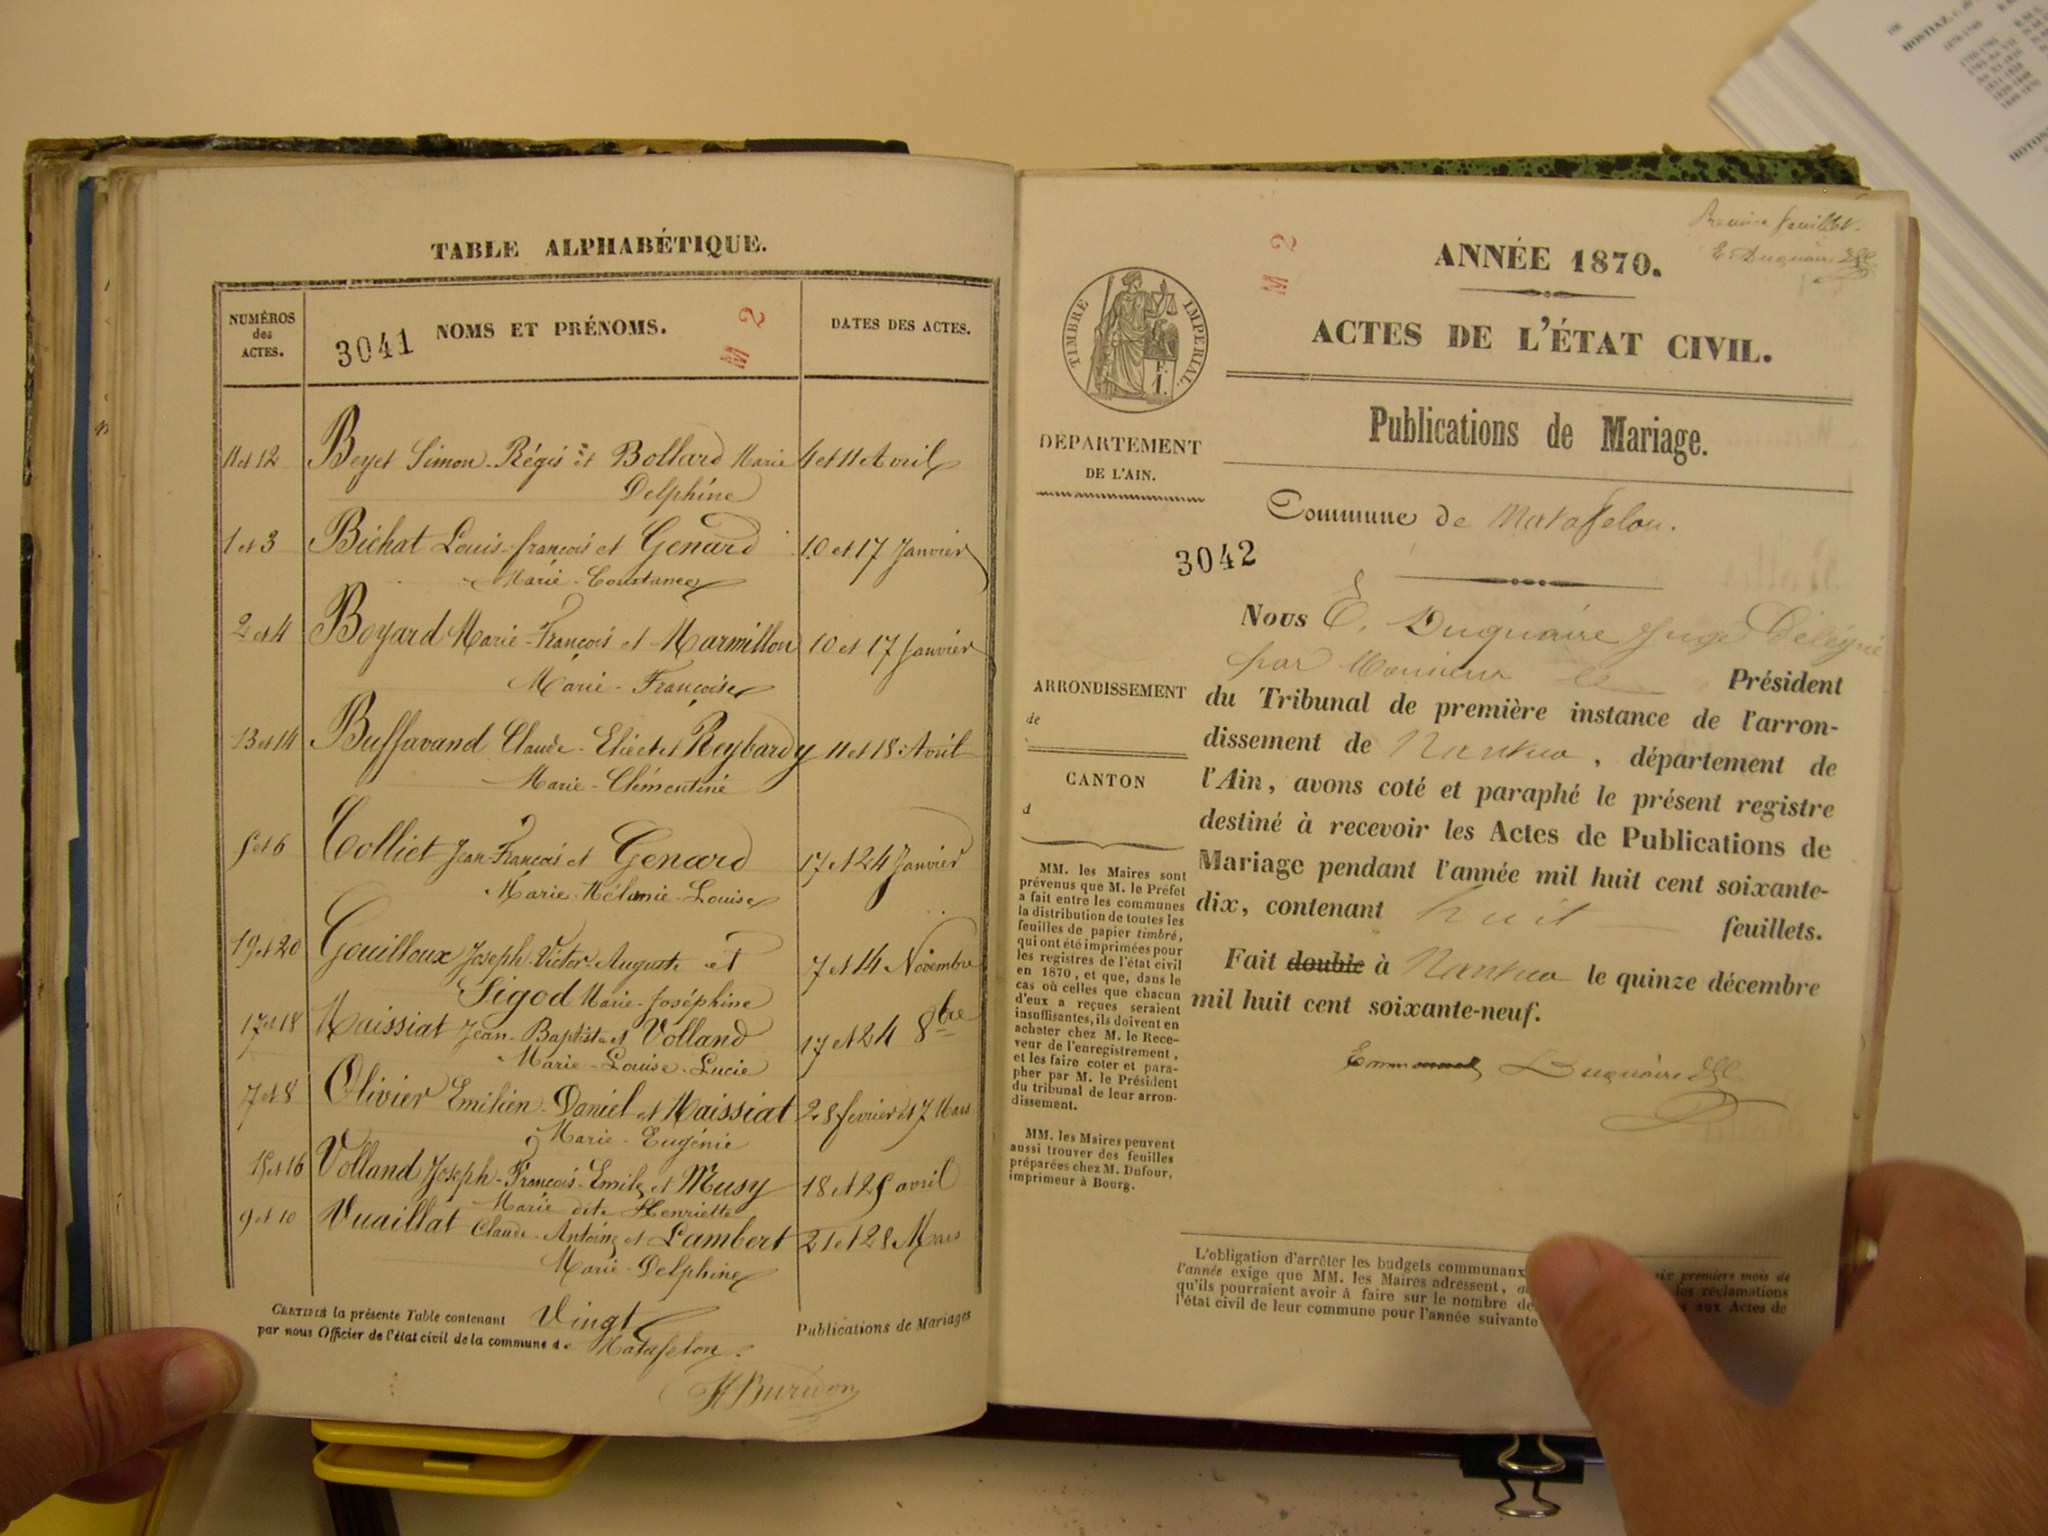 TABLE ALPHABÉTIQUE.
NUMÉROS des ACTES.
3041
NOMS ET PRÉNOMS.
M 2
DATES DES ACTES.
11 et 12 Beyet Simon-Régis et Bollard Marie 4 et 11 Avril
Delphine
1 et 3 Bichat Louis-françois et Genard 10 et 17 Janvier
Marie-Constance
2 et 4 Boyard Marie-François et Marmillon 10 et 17 Janvier
Marie-Françoise
13 et 14 Buffavand Claude-Eliect et Reybardy 11 et 18 Avril
Marie-Clémentine
5 et 6 Colliet Jean-François et Genard 17 et 24 Janvier
Marie-Mélanie-Louise
19 et 20 Gouilloux Joseph-Victor-Auguste et 7 et 14 Novembre
Sigod Marie-Joséphine
17 et 18 Maissiat Jean-Baptiste et Volland 17 et 24 8bre
Marie-Louise-Lucie
7 et 8 Olivier Emilien-Daniel et Maissiat 28 fevrier et 7 Mars
Marie-Eugénie
15 et 16 Volland Joseph-François-Emile et Musy 18 et 25 avril
Marie dite Henriette
9 et 10 Vuaillat Claude-Antoine et Lambert 21 et 28 Mars
Marie-Delphine
CERTIFIÉ la présente Table contenant Vingt Publications de Mariages
par nous Officier de l'état civil de la commune de Matafelon.
Burdon
feuillet.
E. Duquaire
M 2
ANNÉE 1870.
TIMBRE IMPERIAL.
ACTES DE L'ÉTAT CIVIL.
Publications de Mariage.
DÉPARTEMENT
DE L'AIN.
Commune de Matafelon.
3042
Nous E. Duquaire Juge Délégué
par Monsieur le Président
du Tribunal de première instance de l'arron-
dissement de Nantua, département de
l'Ain, avons coté et paraphé le présent registre
destiné à recevoir les Actes de Publications de
Mariage pendant l'année mil huit cent soixante-
dix, contenant huit feuillets.
Fait double à Nantua le quinze décembre
mil huit cent soixante-neuf.
Emmanuel Duquaire
ARRONDISSEMENT
de
CANTON
d
MM. les Maires sont
prévenus que M. le Préfet
a fait entre les communes
la distribution de toutes les
feuilles de papier timbré,
qui ont été imprimées pour
les registres de l'état civil
en 1870, et que, dans le
cas où celles que chacun
d'eux a reçues seraient
insuffisantes, ils doivent en
acheter chez M. le Rece-
veur de l'enregistrement,
et les faire coter et para-
pher par M. le Président
du tribunal de leur arron-
dissement.
MM. les Maires peuvent
aussi trouver des feuilles
préparées chez M. Dufour,
imprimeur à Bourg.
L'obligation d'arrêter les budgets communaux six premiers mois de
l'année exige que MM. les Maires adressent, les réclamations
qu'ils pourraient avoir à faire sur le nombre de aux Actes de
l'état civil de leur commune pour l'année suivante
HOTON